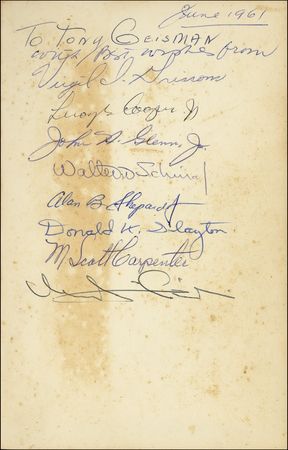 June 1961
To Tony Geisman
with best wishes from
Virgil I. Grissom
Leroy G Cooper Jr
John H. Glenn, Jr.
Walter M Schirra Jr
Alan B. Shepard Jr
Donald K. Slayton
M Scott Carpenter